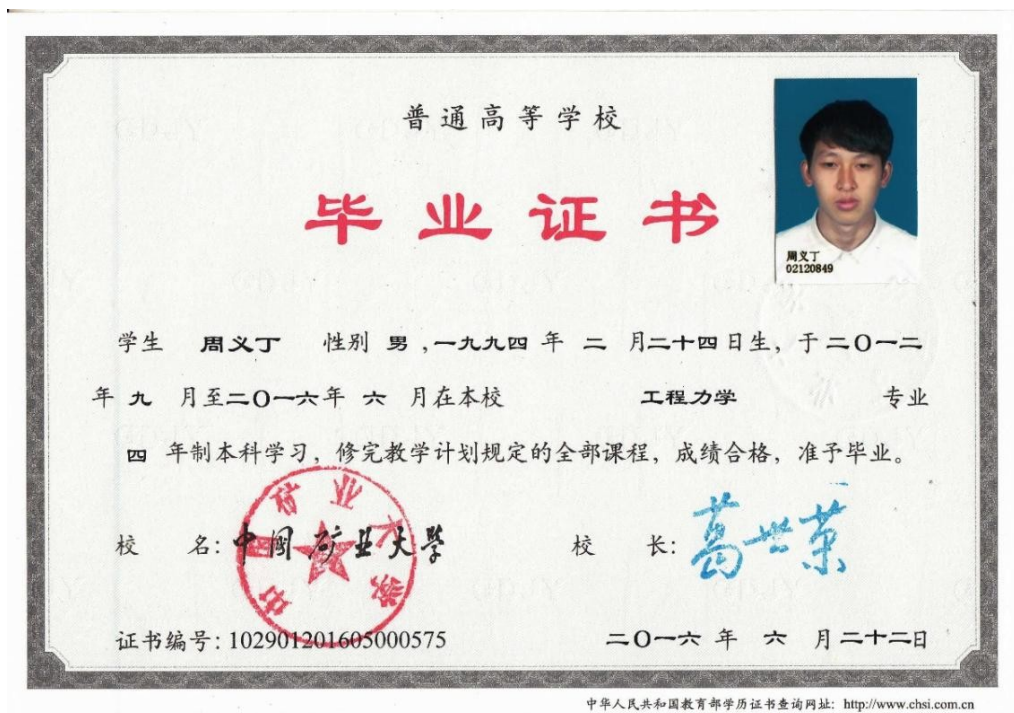 普通高等学校
毕业证书
周义丁
02120849
学生 周义丁 性别 男，一九九四 年 二 月二十四日生，于二〇一二
年 九 月至二〇一六年 六 月在本校 工程力学 专业
四 年制本科学习，修完教学计划规定的全部课程，成绩合格，准予毕业。
校 名：中国矿业大学 校 长：葛世荣
证书编号：102901201605000575 二〇一六 年 六 月二十二日
中华人民共和国教育部学历证书查询网址：http://www.chsi.com.cn